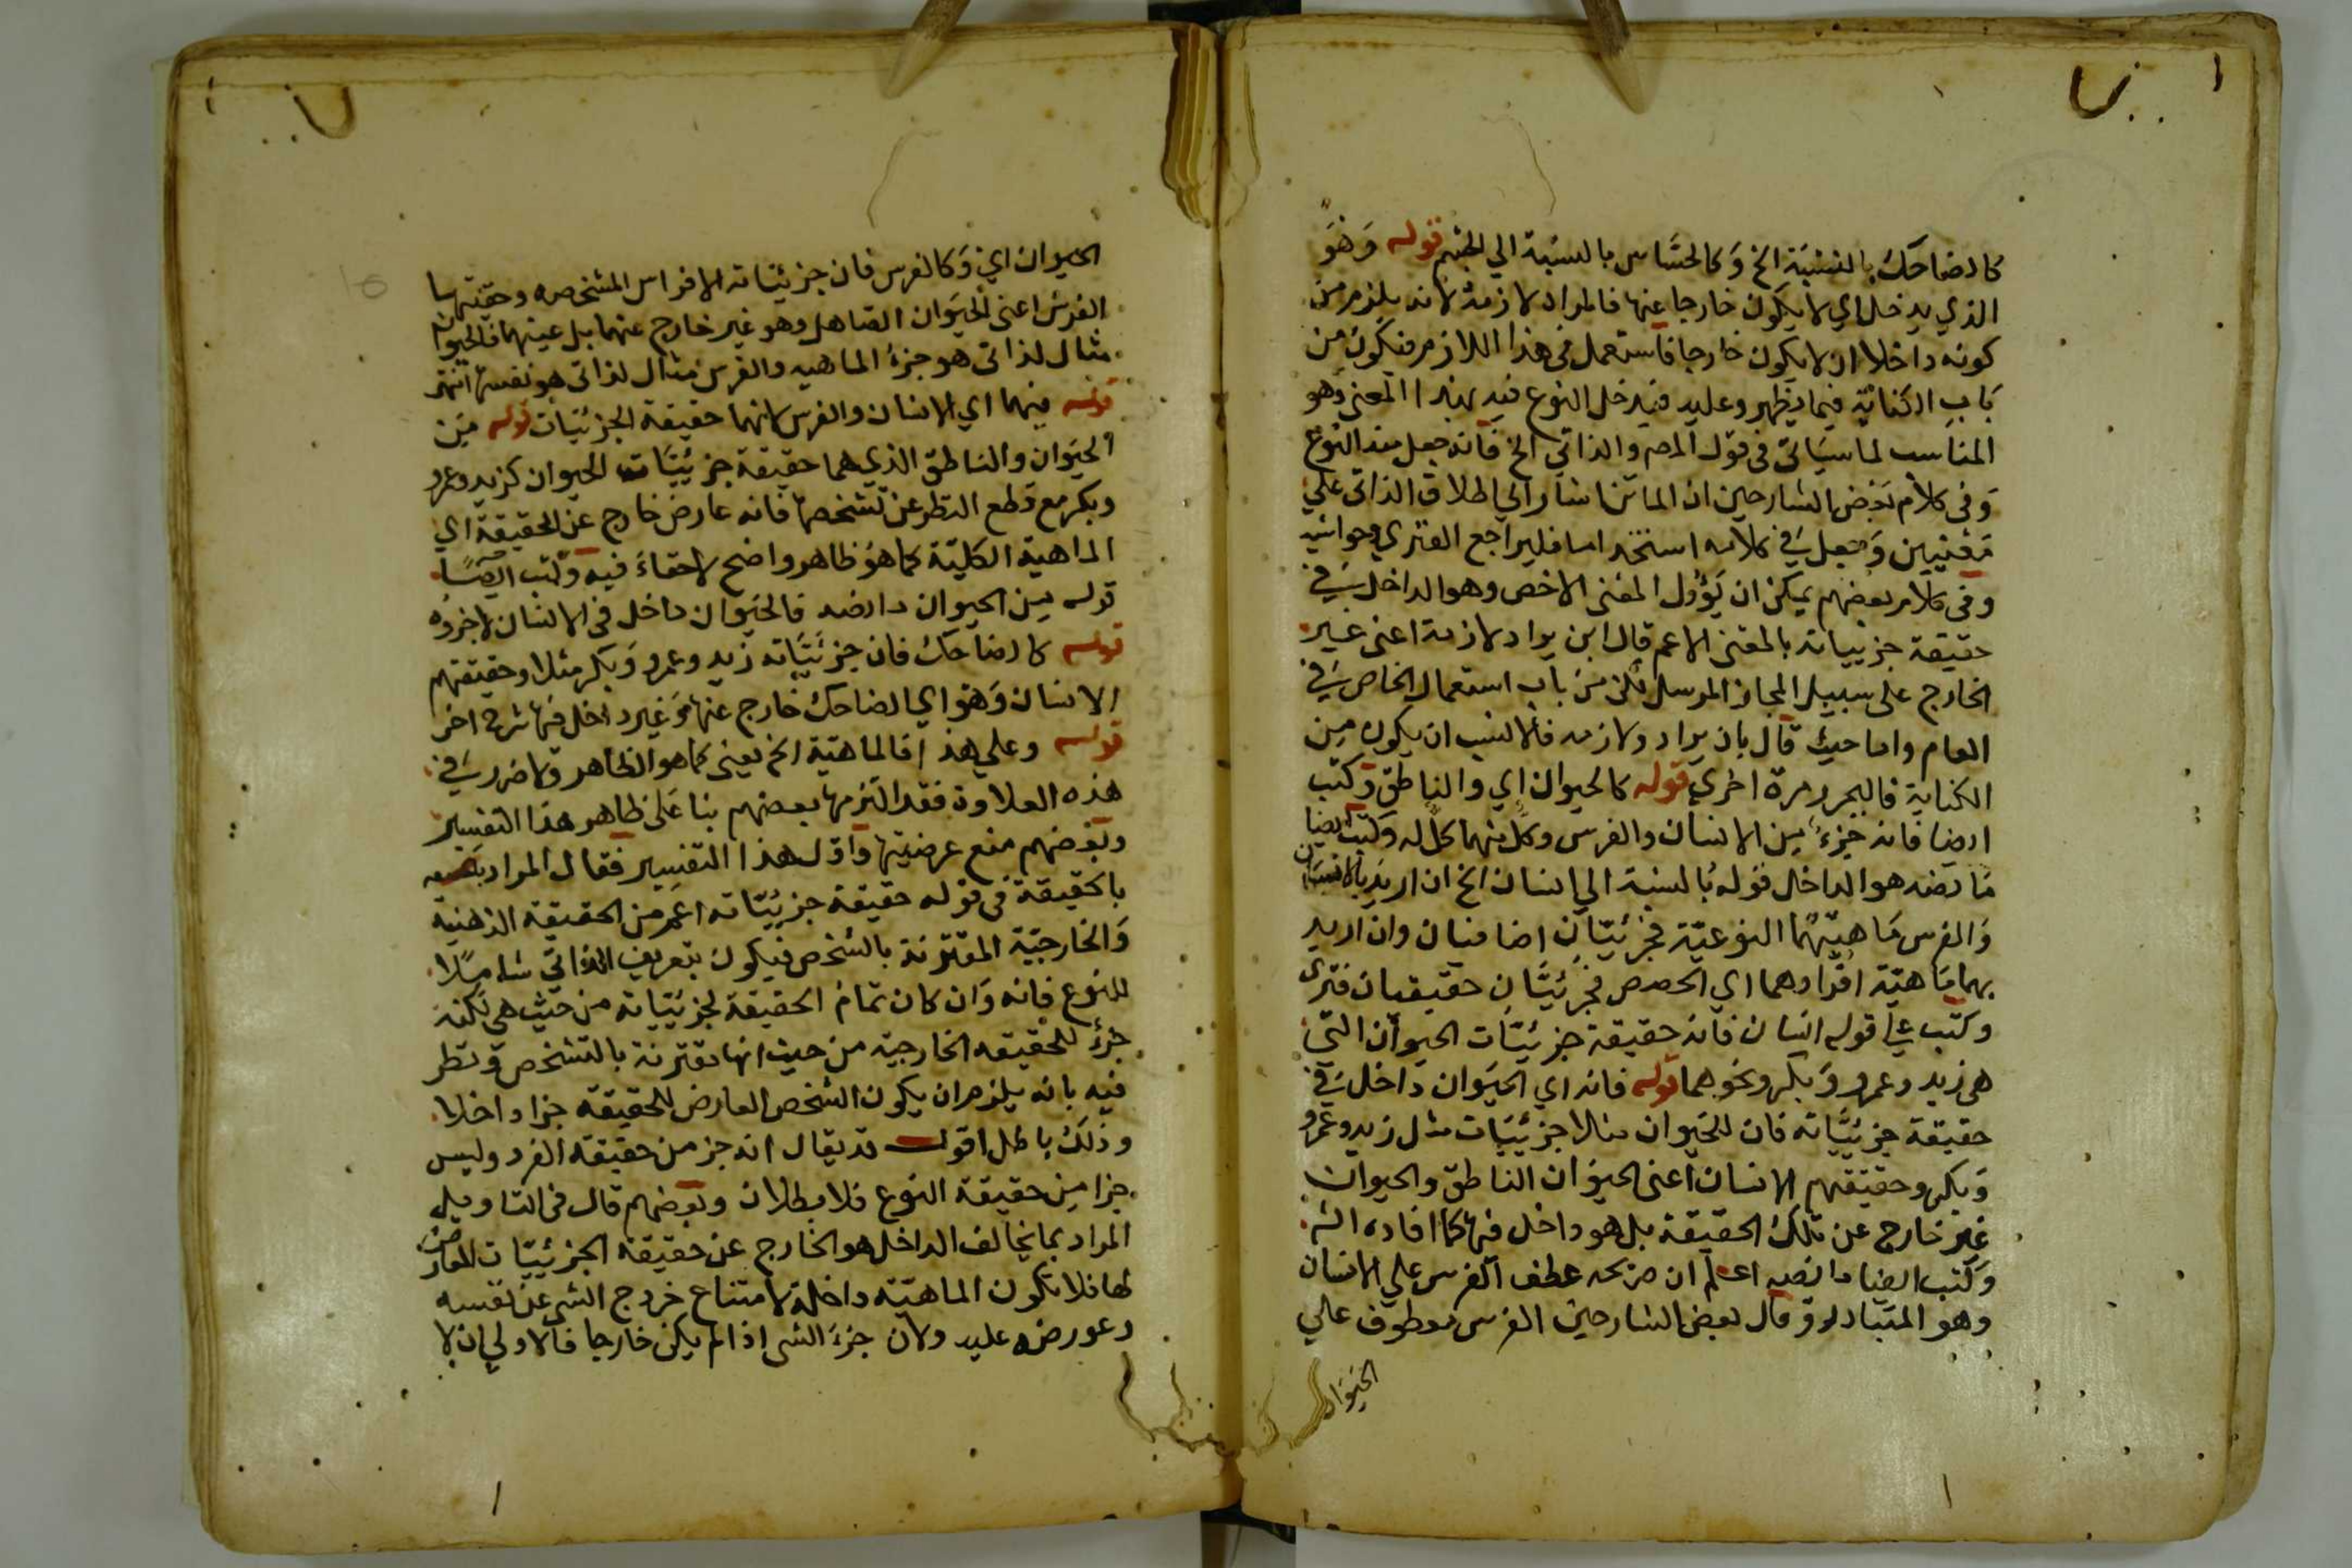 كالضاحك بالنسبة الخ وكالحساس بالنسبة الي الجسم قوله وهو
الذي يدخل اي لا يكون خارجا عنها فالمراد لازمه لانه يلزم من
كونه داخلا ان لا يكون خارجا فاستعمل في هذا اللازم فيكون من
باب الكناية فيما يظهر وعليه فيدخل النوع فيه بهذا المعنى وهو
المناسب لما سياتى فى قول المص والذاتي الخ فانه جعل منه النوع
وفى كلام بعض الشارحين ان الماتن اشار الي اطلاق الذاتى علي
معنيين وجعل في كلامه استخداما فليراجع الفنري وحواشيه
وفى كلام بعضهم يمكن ان يؤول المعنى الاخص وهو الداخل في
حقيقة جزيياته بالمعنى الاعم قال ابن يراد لازمه اعنى غير
الخارج على سبيل المجاز المرسل لكن من باب استعمال الخاص في
العام واما حيث قال بان يراد ولازمه فالانسب ان يكون من
الكناية فاليحرر مرة اخري قوله كالحيوان اي والناطق وكتب
ايضا فانه جزء من الانسان والفرس وكل منهما كل له وكتب ايضا
ما نصه هو الداخل قوله بالنسبة الي انسان الخ ان اريد بالانسان
والفرس ماهيتهما النوعية فجزئيتان اضافيان وان اريد
بهما ماهية افرادهما اي الحصص فجزئيتان حقيقيان فنرى
وكتب علي قوله انسان فانه حقيقة جزئيات الحيوان التي
هى زيد وعمرو وبكر ونحوهما قوله فانه اي الحيوان داخل في
حقيقة جزئياته فان للحيوان مثلا جزئيات مثل زيد وعمرو
وبكر وحقيقتهم الانسان اعنى الحيوان الناطق والحيوان
غير خارج عن تلك الحقيقة بل هو داخل فيها كما افاده الش
وكتب ايضا ما نصه اعلم ان صريحه عطف الفرس علي الانسان
وهو المتبادر وقال بعض الشارحين الفرس معطوف علي
الحيوان
الحيوان اي وكالفرس فان جزئياته الافراس المشخصه وحقيقتها
الفرس اعنى الحيوان الصاهل وهو غير خارج عنهما بل عينهما فالحيوان
مثال لذاتى هو جزء الماهيه والفرس مثال لذاتى هو نفسها انتهى
قوله فيهما اي الانسان والفرس لانهما حقيقة الجزئيات قوله من
الحيوان والناطق الذي هما حقيقة جزئيات الحيوان كزيد وعمرو
وبكر مع قطع النظر عن تشخصها فانه عارض خارج عن الحقيقة اي
الماهية الكلية كما هو ظاهر واضح لا خفاء فيه وكتب ايضا
قوله من الحيوان ما نصه فالحيوان داخل فى الانسان لا جزؤه
قوله كالضاحك فان جزئياته زيد وعمرو وبكر مثلا وحقيقتهم
الانسان وهو اي الضاحك خارج عنها وغير داخل فيها شرح اخر
قوله وعلي هذا فالماهية الخ يعنى كما هو الظاهر ولا ضرر في
هذه العلاوة فقد التزمها بعضهم بنا على ظاهر هذا التفسير
وبعضهم منع عرضيتها واول هذا التفسير فقال المراد
بالحقيقة فى قوله حقيقة جزئياته اعم من الحقيقة الذهنية
والخارجية المقترنة بالشخص فيكون تعريف الذاتي شاملا
للنوع فانه وان كان تمام الحقيقة لجزئياته من حيث هى لكنه
جزء للحقيقه الخارجية من حيث انها مقترنة بالتشخص ونظر
فيه بانه يلزم ان يكون الشخص العارض للحقيقة جزا داخلا
وذلك باطل اقول قد يقال انه جز من حقيقة الفرد وليس
جزا من حقيقة النوع فلا بطلان وبعضهم قال فى التاويل
المراد بما يخالف الداخل هو الخارج عن حقيقة الجزئيات العارض
لها فلا تكون الماهية داخلة لامتناع خروج الشى عن نفسه
وعورض عليه ولان جزء الشى اذا لم يكن خارجا فالاولي ان لا